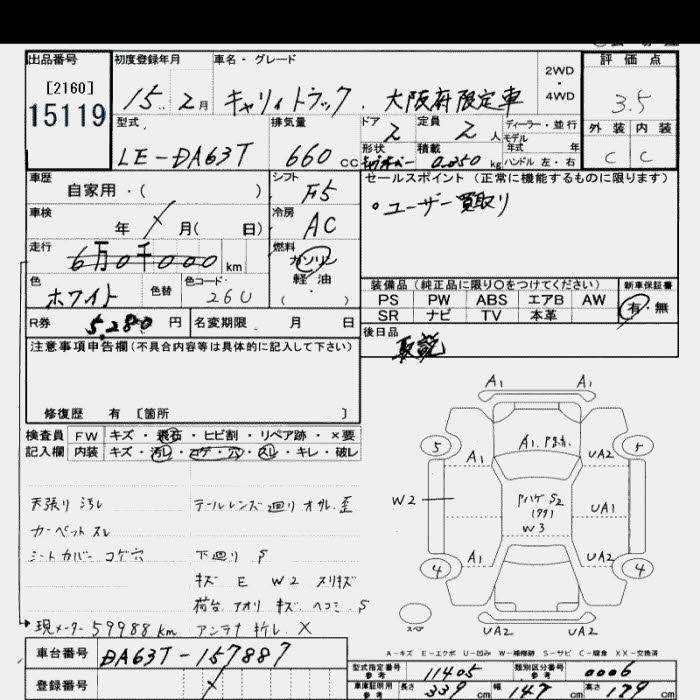 出品番号 初度登録年月 車名・グレード 2WD 4WD 評価点
[2160]
15119 15年 2月 キャリイトラック . 大阪府限定車 3.5
型式 排気量 ドア 定員 ディーラー・並行 外装 内装
2 2人 モデル年式 年
形状 積載
LE-DA63T 660cc 0.350kg ハンドル 左・右 C C
車歴 シフト セールスポイント (正常に機能するものに限ります)
自家用・( ) F5 ・ユーザー買取り
車検 冷房
年 月( 日) AC
走行 燃料
6万0千000km ガソリン
軽・油
( )
色 色替 色コード
ホワイト 26U
装備品(純正品に限り〇をつけてください) 新車保証書
PS PW ABS エアB AW 有・無
SR ナビ TV 本革
R券 5,280円 名変期限 . 月 日 後日品
取説
注意事項申告欄(不具合内容等は具体的に記入して下さい)
修復歴 有 [箇所 ]
検査員 FW キズ・飛石・ヒビ割・リペア跡・×要
記入欄 内装 キズ・汚レ・コゲ・穴・スレ・キレ・破レ
天張り 汚レ テールレンズ廻り オサレ.歪
カーペット スレ
シートカバー コゲ穴 下廻り S
キズ E W2 スリキズ
荷台 アオリ キズ ヘコミ S
現メーター 59988km アンテナ 折レ X
A1 A1
5 A1. 5
A1 UA2
W2 S2 UA1
W3
4 A1 UA2 4
スペ UA2 UA2
A-キズ E-エクボ U-凹み W-補修跡 S-サビ C-腐食 XX-交換済
車台番号 DA63T-157887
登録番号
型式指定番号 参考 11405 類別区分番号 参考 0006
車庫証明用 参考 長さ 339cm 幅 147cm 高さ 179cm